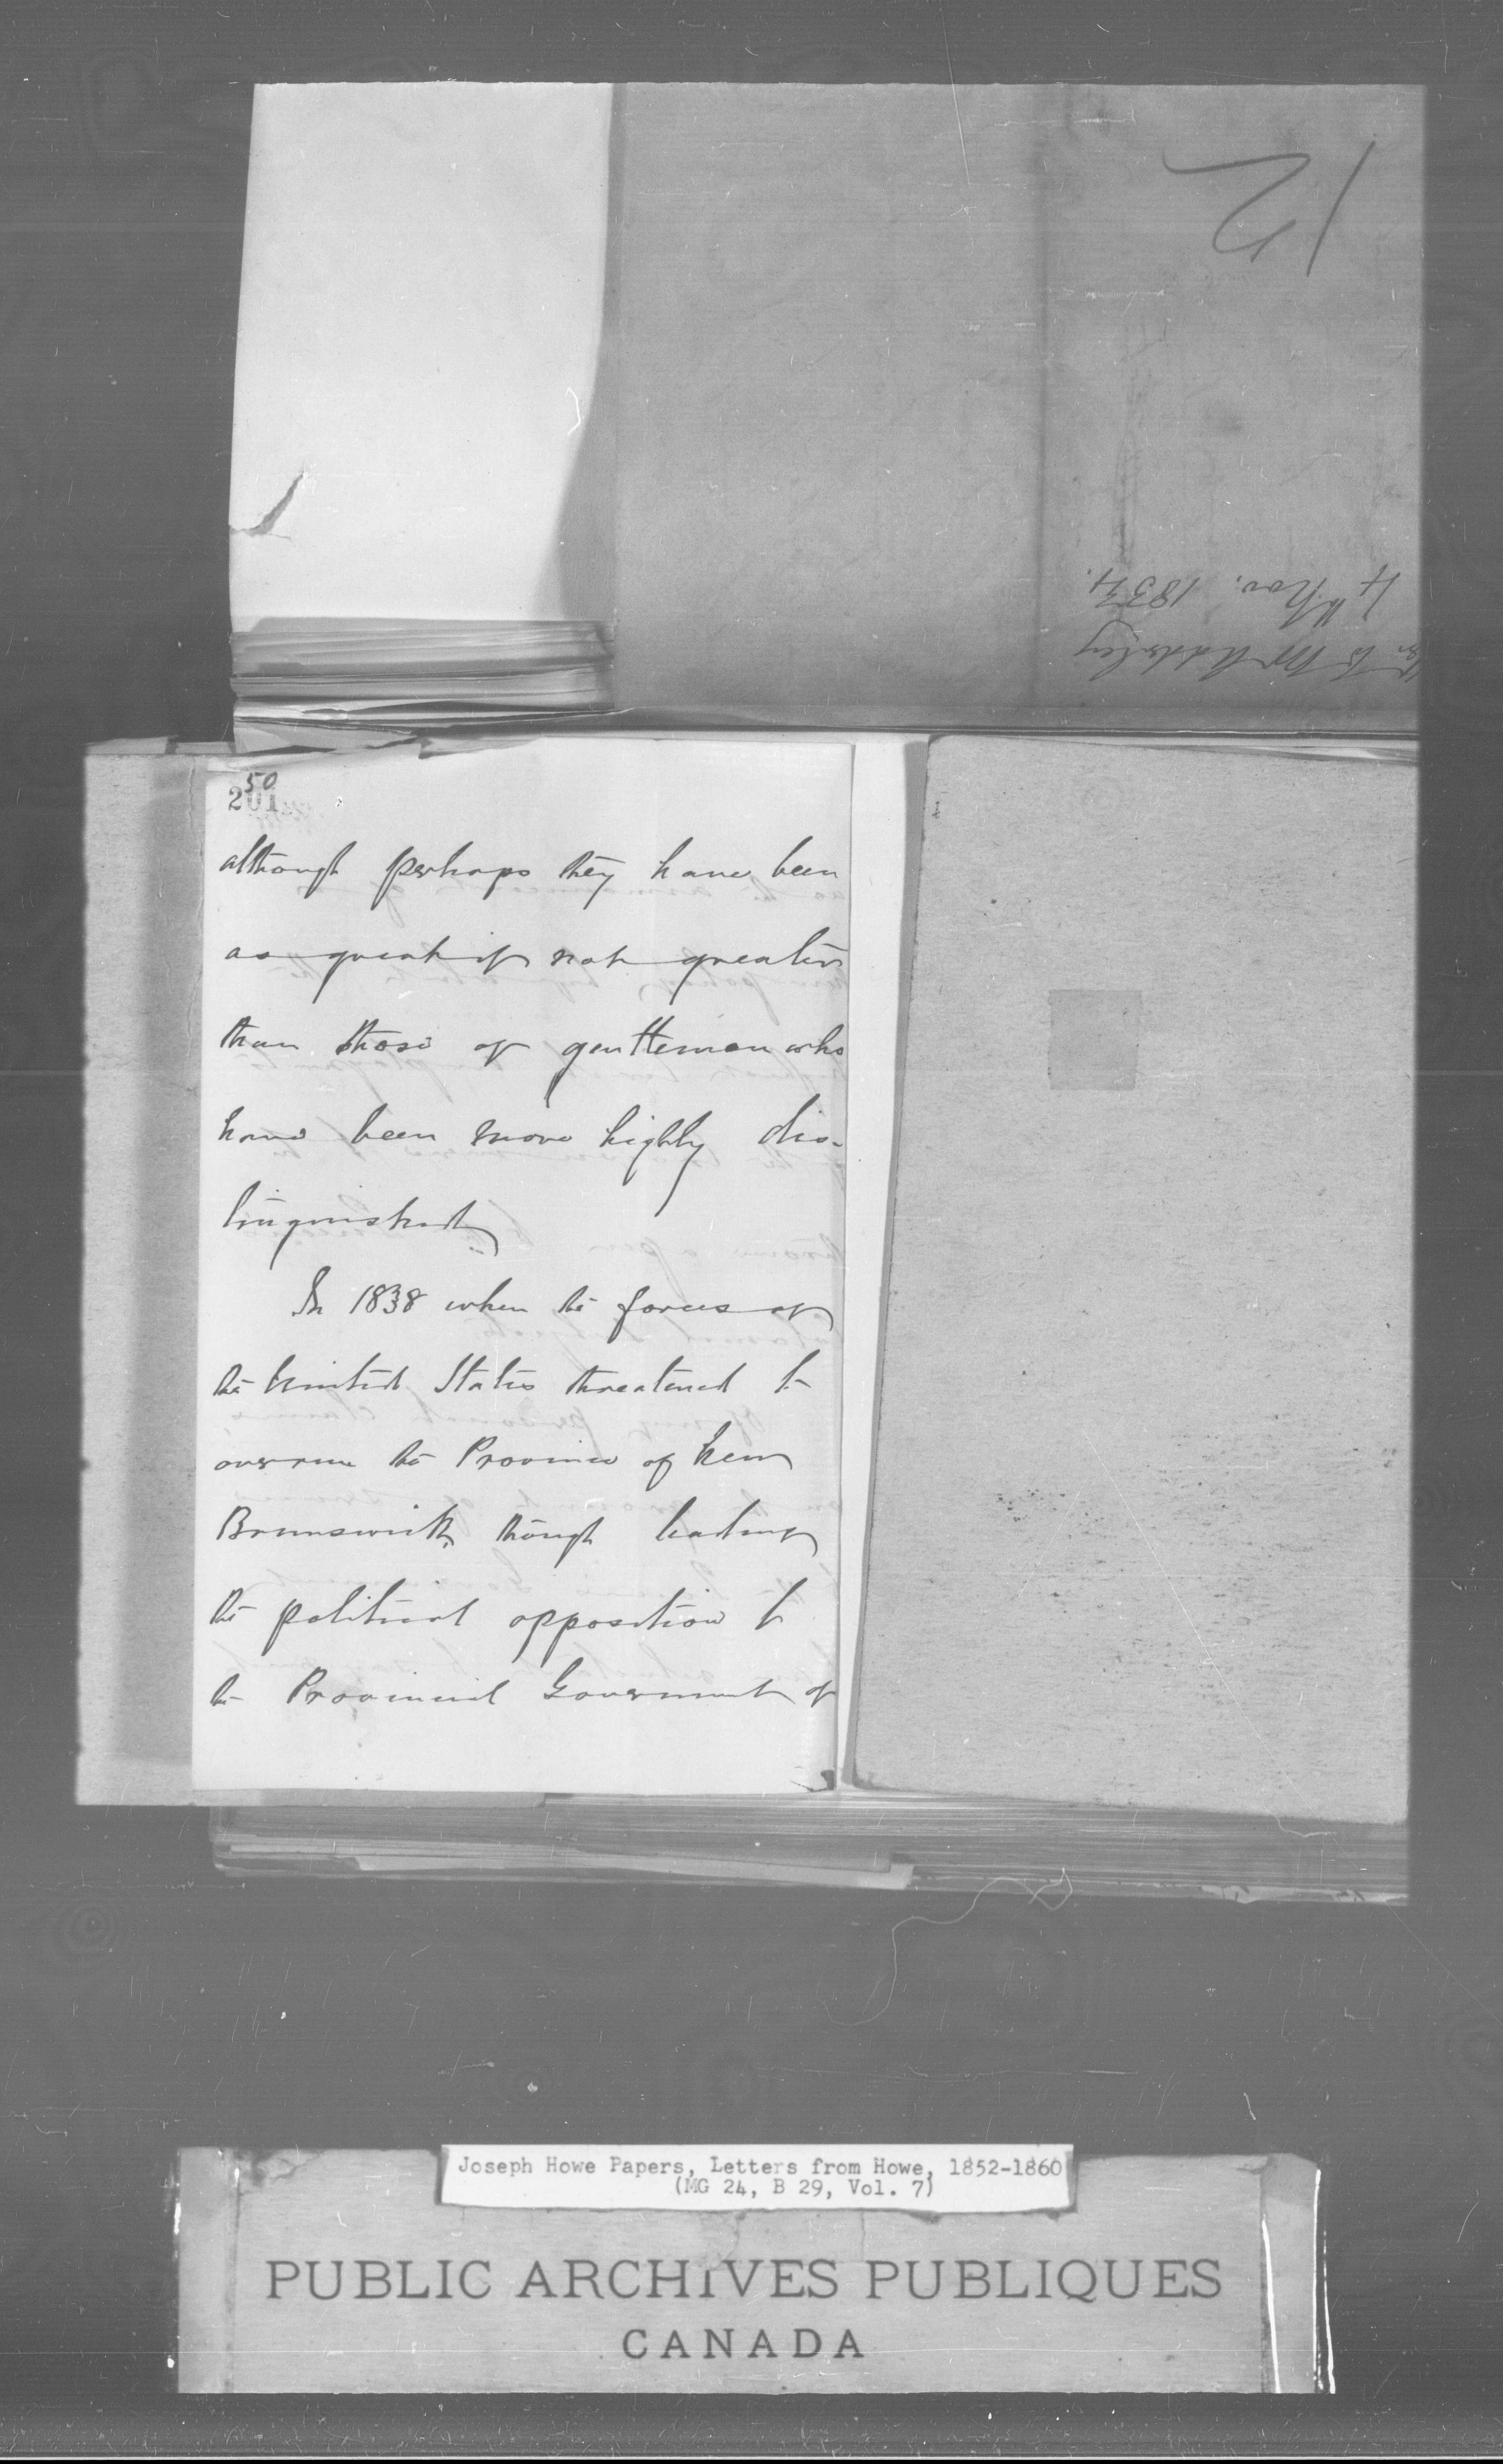 12
4th Nov. 1854.
to Mr Adderley
50
201
although perhaps they have been
as great if not greater
than those of gentlemen who
have been more highly dis-
tinguished
In 1838 when the forces of
the United States threatened to
overrun the Province of New
Brunswick, though leading
the political opposition to
the Provincial Government of
Joseph Howe Papers, Letters from Howe, 1852-1860
(MG 24, B 29, Vol. 7)
PUBLIC ARCHIVES PUBLIQUES
CANADA